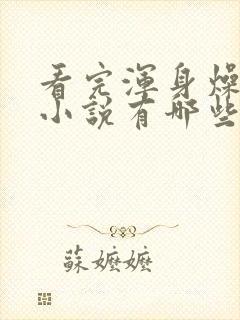 看完渾身燥
小說有哪些
蘇嬤嬤